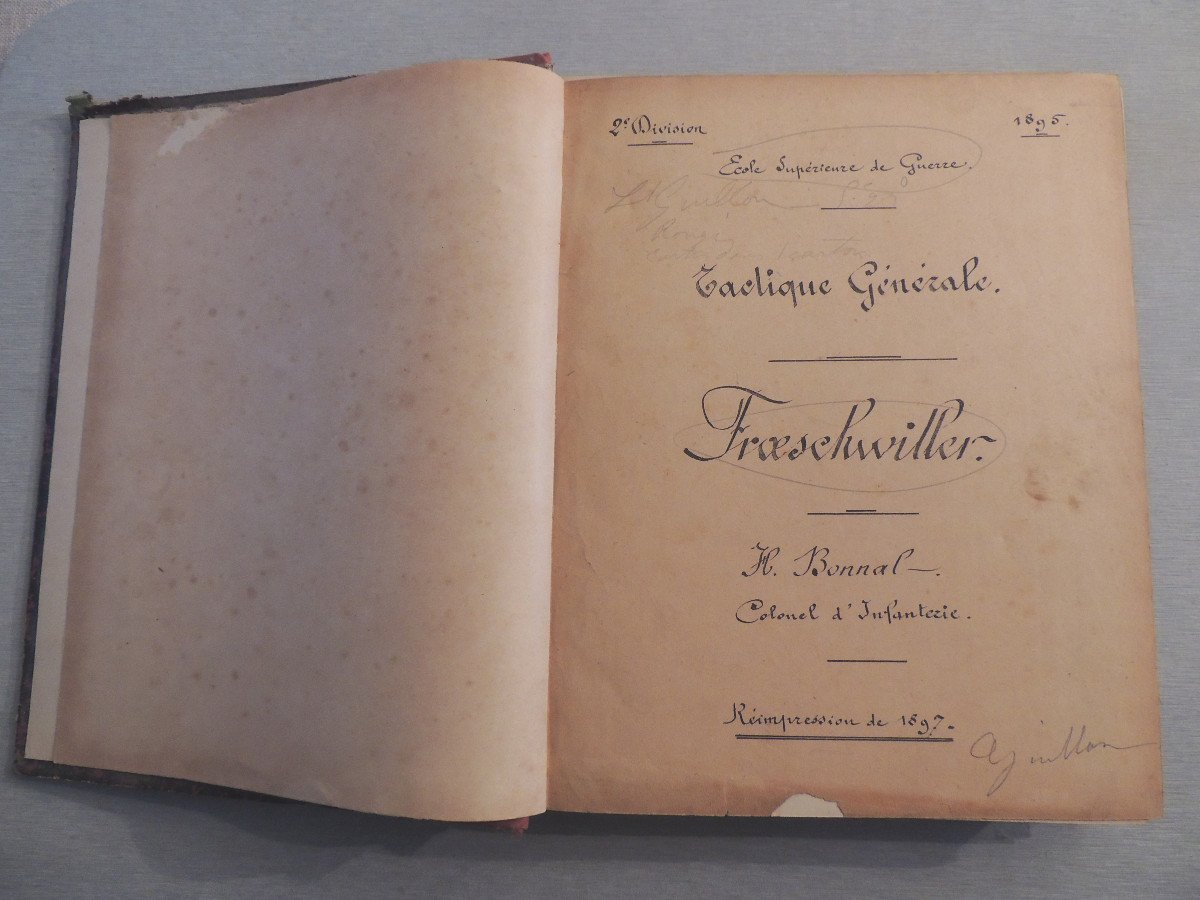 2e Division
1895.
Ecole Supérieure de Guerre.
Tactique Générale.
Frœschwiller.
H. Bonnal.
Colonel d'Infanterie.
Réimpression de 1897.